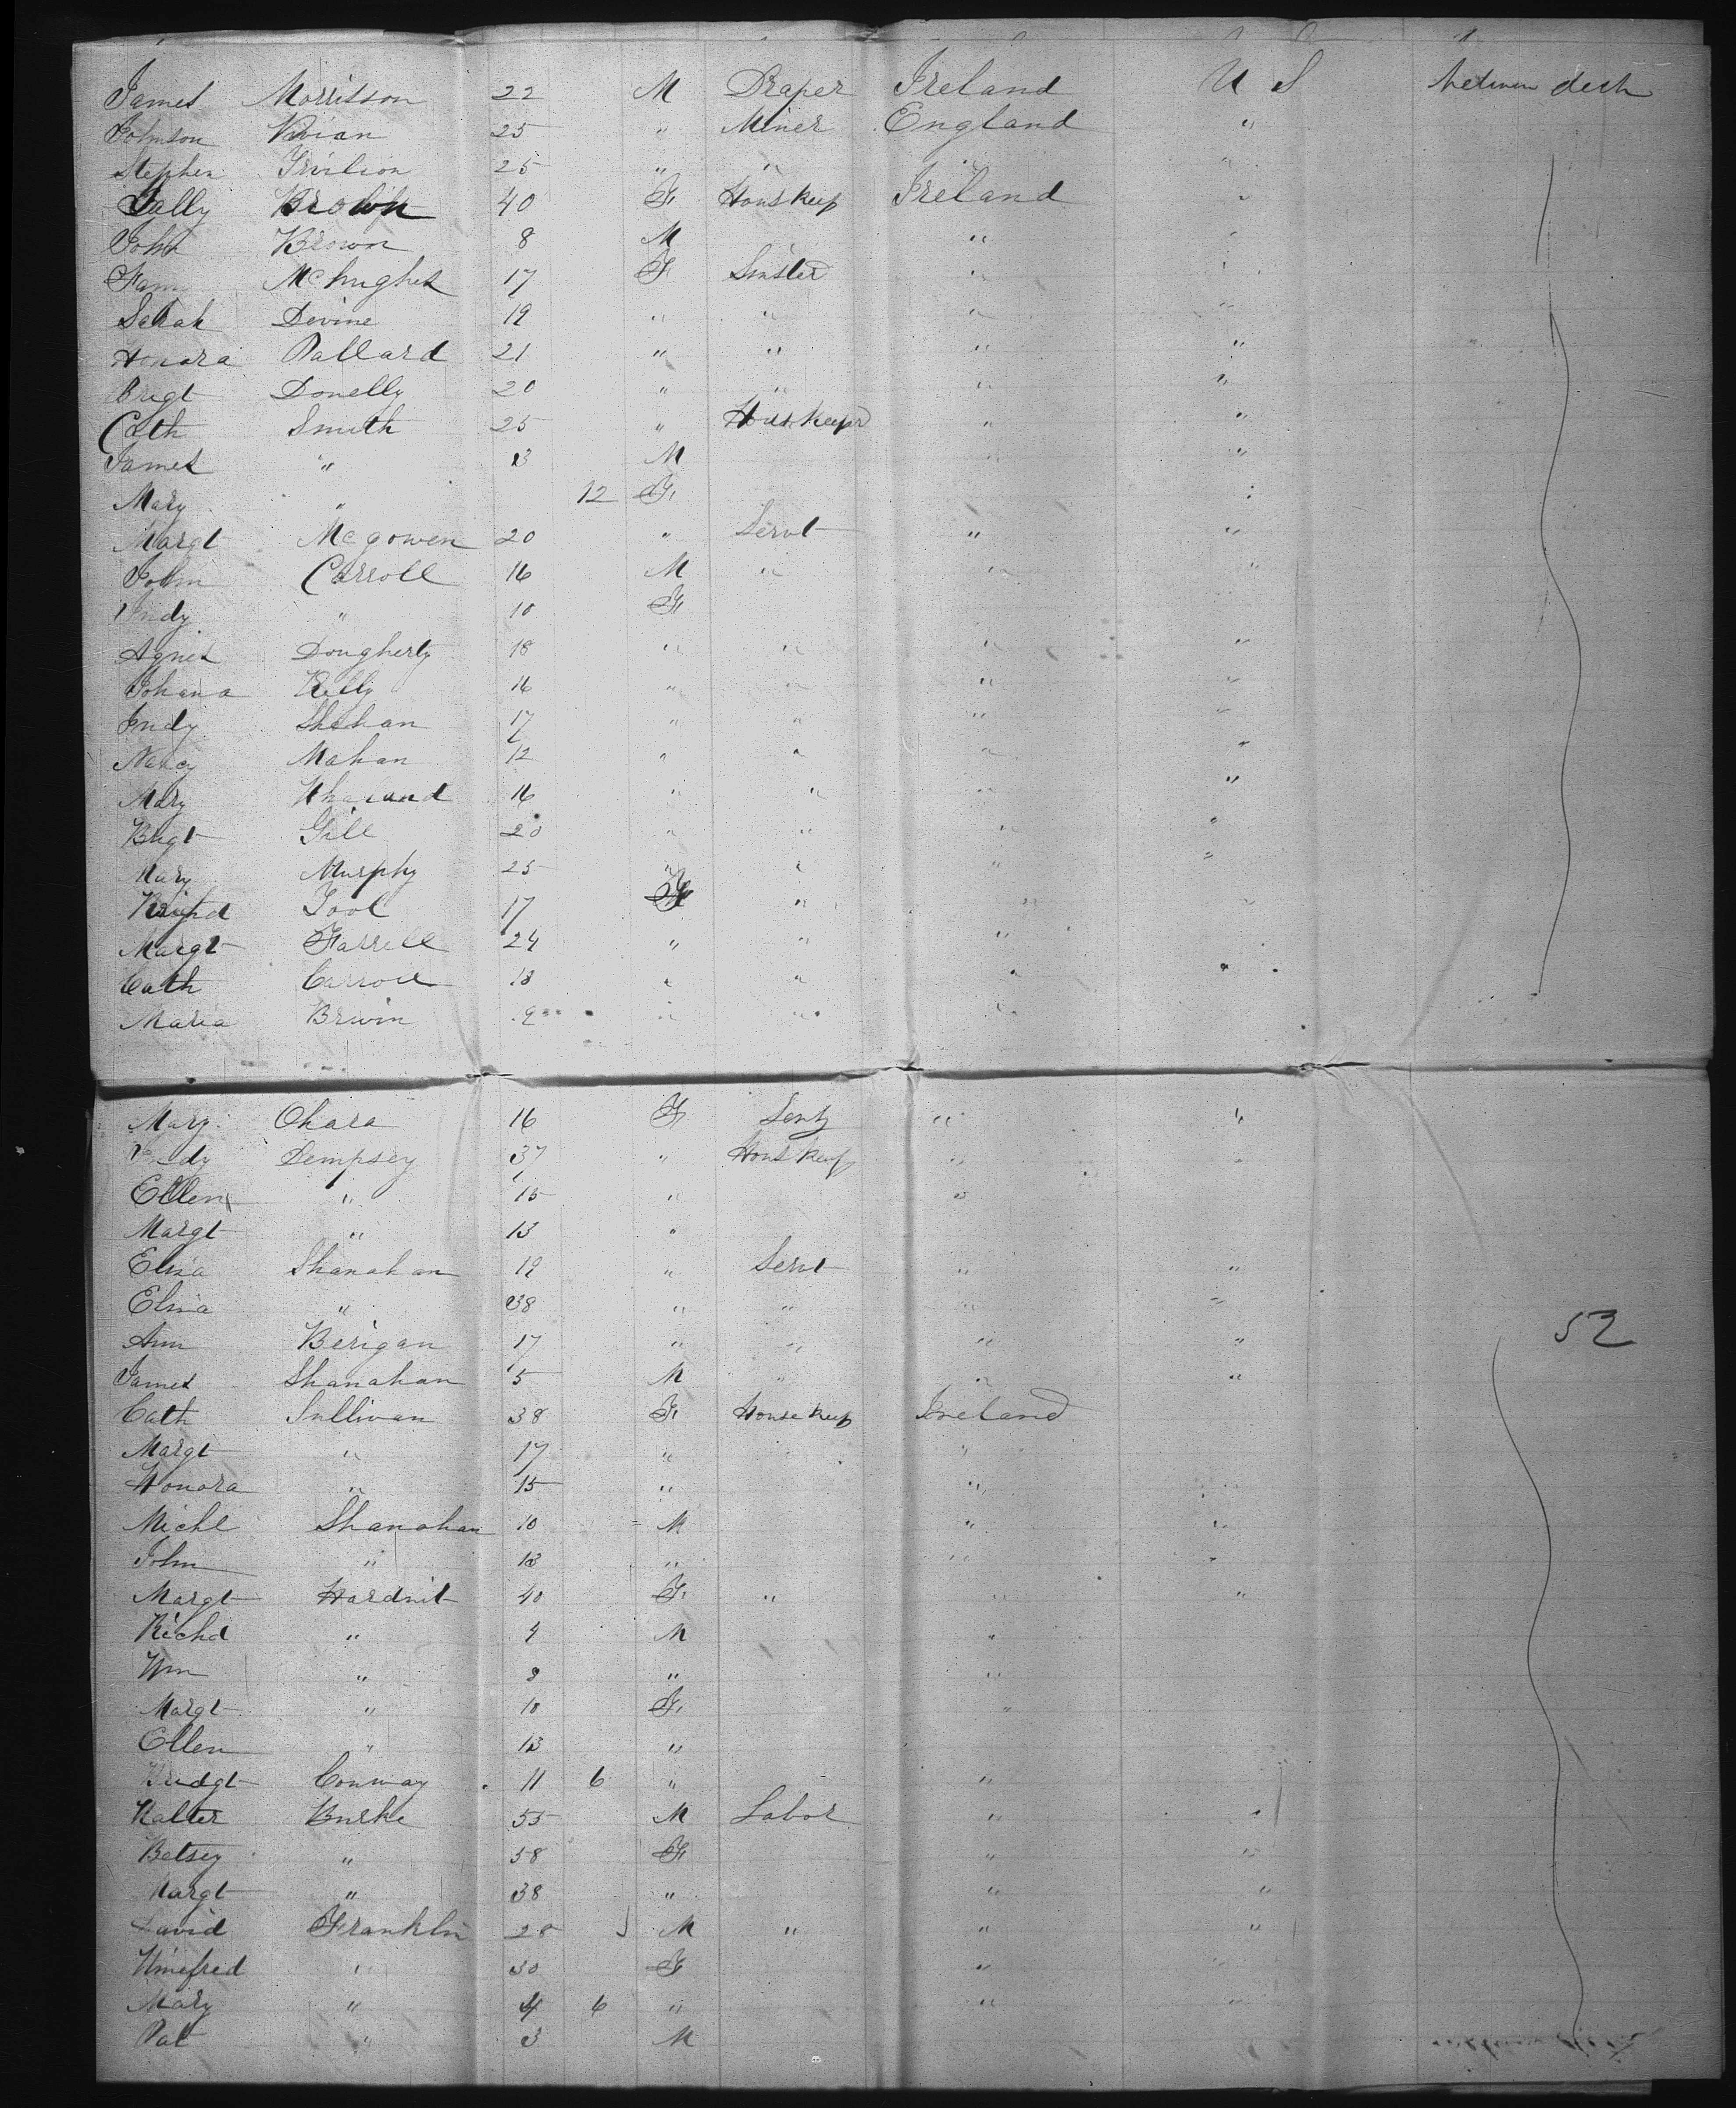 James Morrisson 22 M Draper Ireland U S between deck
Johnson Vivian 25 " Miner England "
Stephen 25 " " " "
Sally Brown 40 F Hous Keep Ireland "
John Brown 8 M " "
McHughes 17 F " "
Sarah Devine 19 " " " "
Honora Pallard 21 " " " "
Brigt Donelly 20 " " " "
Cath Smith 25 " " "
James " 3 M " "
Mary " 12 F "
Margt McGowen 20 " Servt " "
John Carroll 16 M " " "
10 F
Agnes Dougherty 18 " " " "
Johana Kelly 16 " " " "
Judy Shehan 17 " " " "
Nancy Mahan 12 " " " "
Mary 16 " " " "
Brigt Gill 20 " " " "
Mary Murphy 25 " " " "
Tool 17 F " " "
Margt Farrell 24 " " " "
Cath Carroll 18 " " " "
Maria Brwin 9 " " "
Mary Ohara 16 F " "
Dempsey 37 " Hous Keep " "
Ellen " 15 " "
Margt " 13 "
Eliza Shanahan 19 " Servt " "
Eliza " 38 " " " "
Ann Berigan 17 " " " " 52
James Shanahan 5 M " " "
Cath Sullivan 38 F House Keep Ireland
Margt " 17 " "
Honora " 15 " " "
Michl Shanahan 10 M " "
John " 13 " " "
Margt Hardnit 40 F " " "
Richd " 4 M "
Wm " 8 " "
Margt " 10 F "
Ellen " 13 "
Bridgt Conway 11 6 " "
Walter Burke 55 M Labor " "
Betsey " 58 F " "
Margt " 38 " " "
David Franklin 28 M " " "
Winefred " 30 F "
Mary " 4 6 " " "
Pat " 3 M